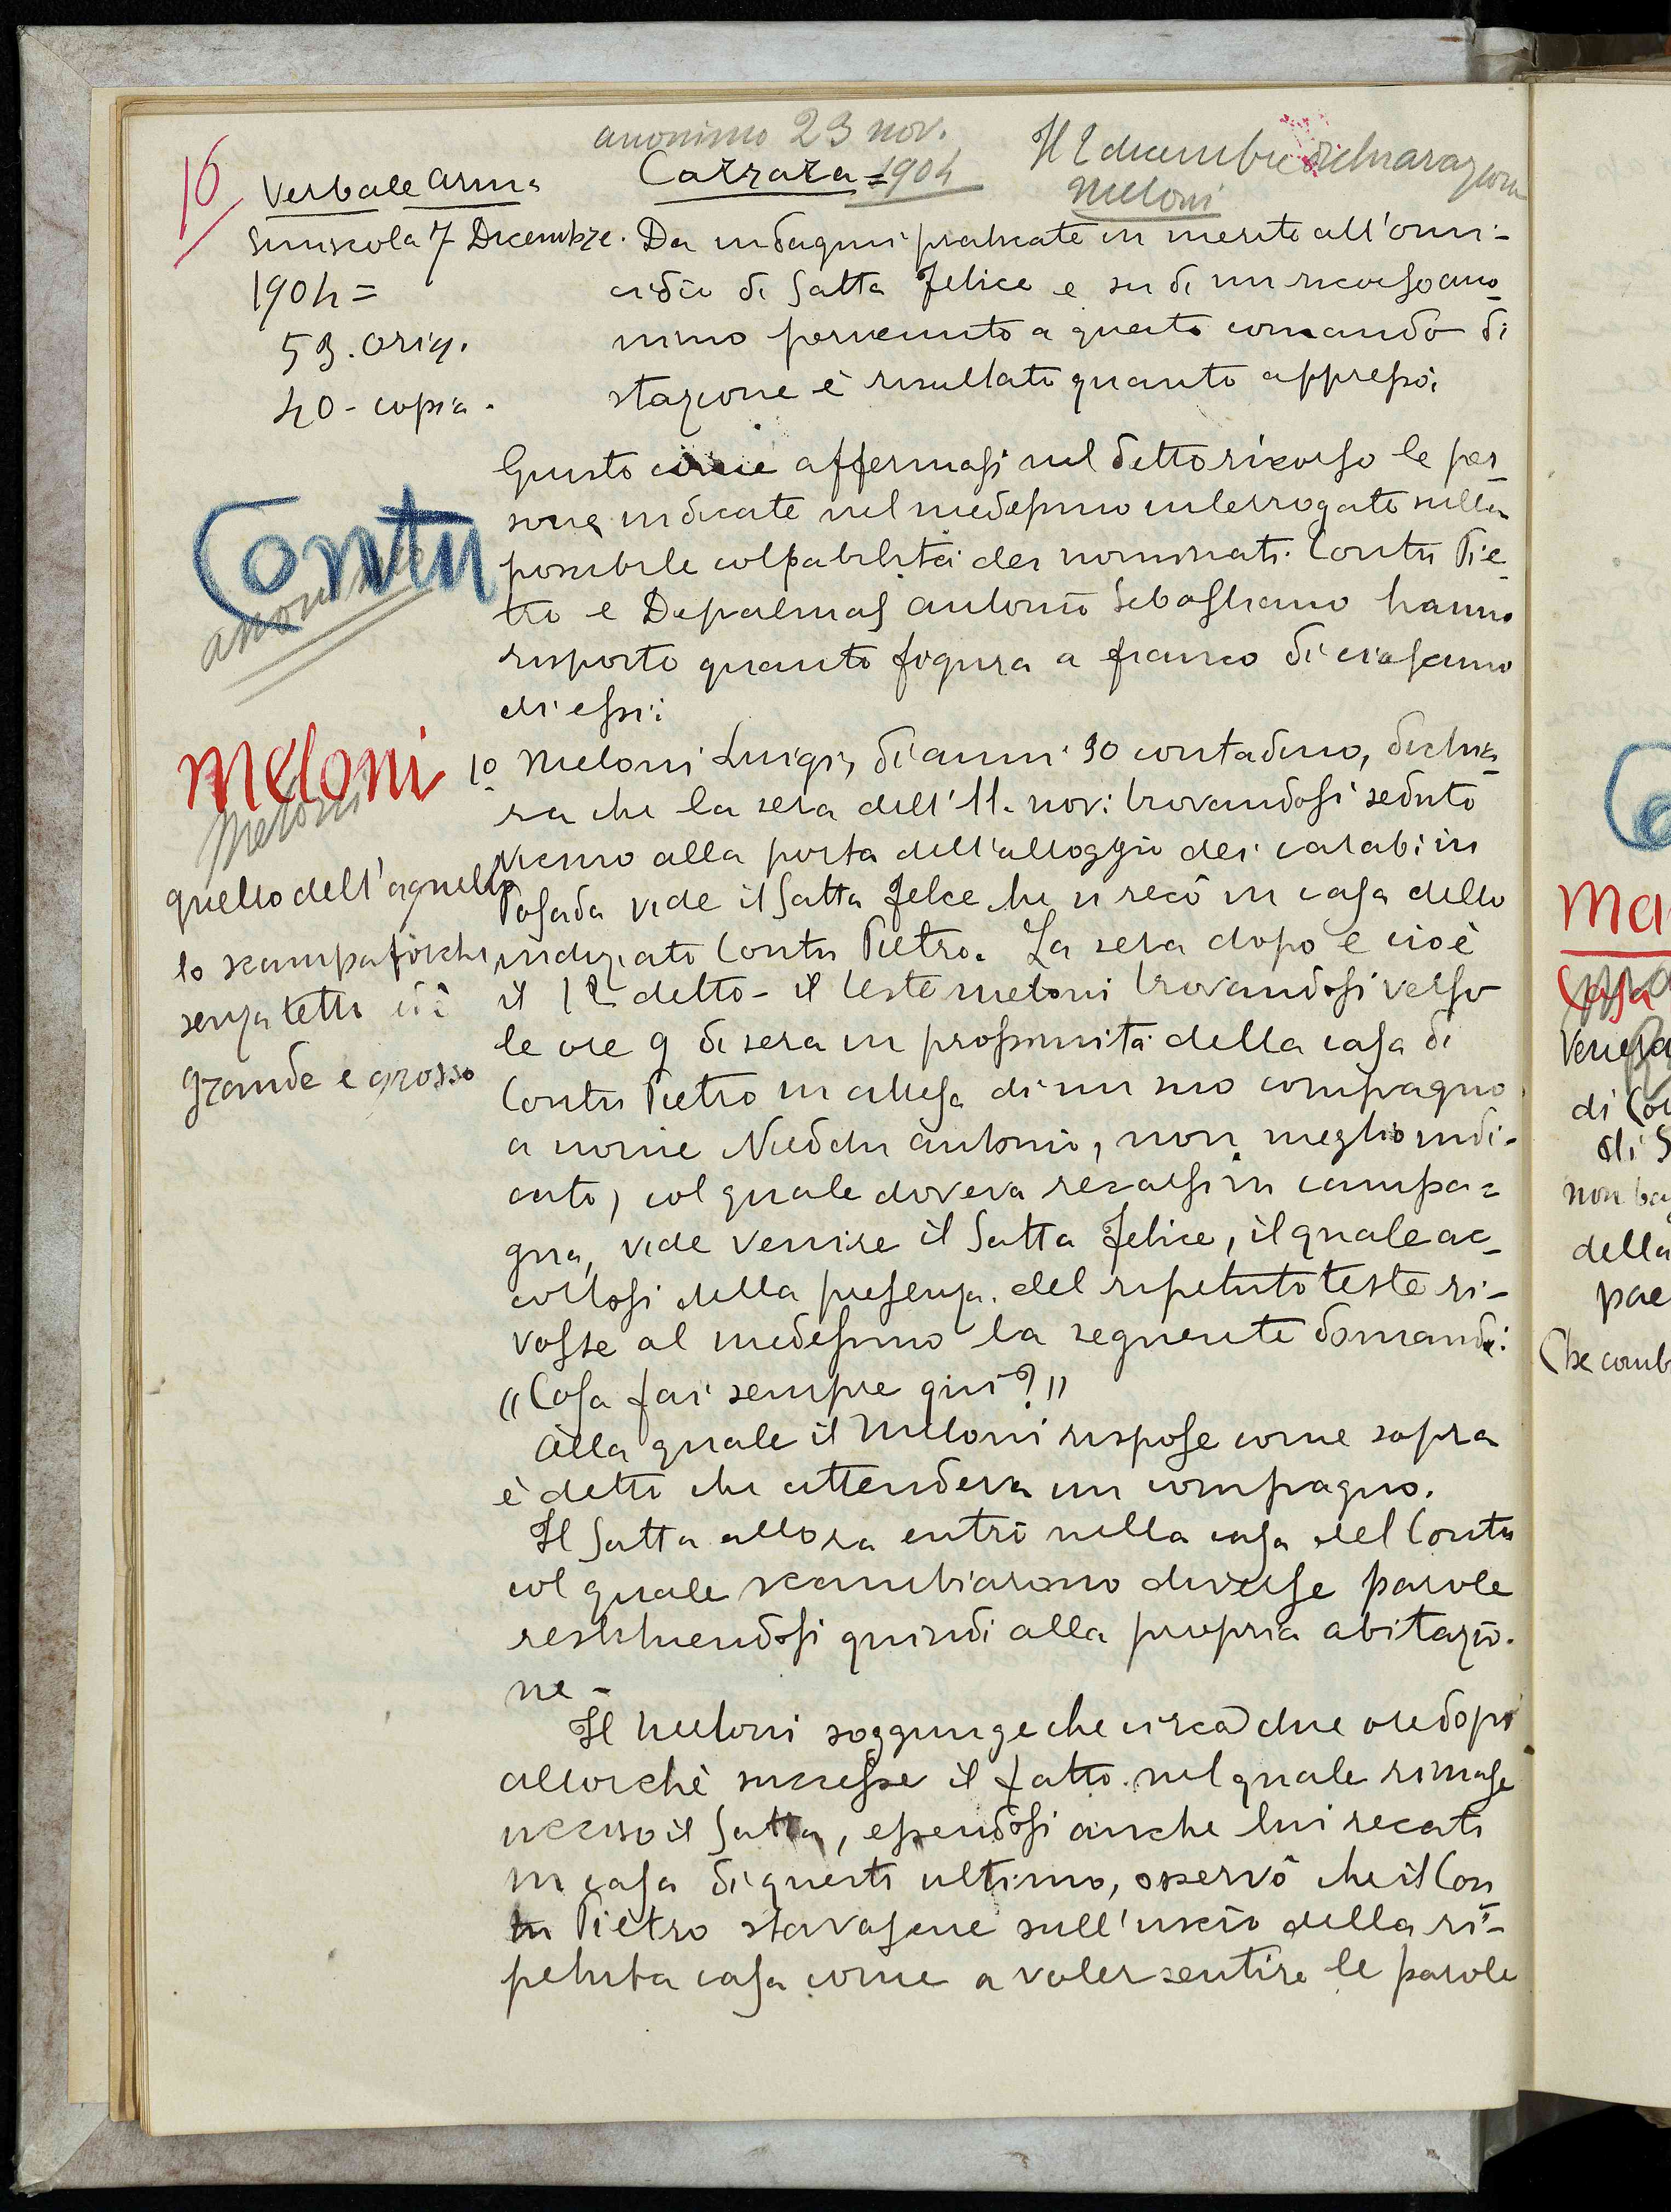 anonimo 23 nov.
1904
Il 2 dicembre dichiarazione
Meloni
16
Verbale arma
Siniscola 7 Dicembre.
1904 =
53. orig.
40 - copia.
Carrara =
Da indagini praticate in merito all'omi-
cidio di Satta Felice e su di un ricorso ano
nimo pervenuto a questo comando di
stazione è risultato quanto appresso:
Giusto come affermasi nel detto ricorso le per
sone indicate nel medesimo interrogate sulla
possibile colpabilità dei nominati Contu Pie
tro e Depalmas Antonio Sebastiano hanno
risposto quanto figura a fianco di ciascuno
di essi:
Contu
anonimo
1o Meloni Luigi, di anni 30 contadino, dichia
ra che la sera dell'11. nov: trovandosi seduto
vicino alla porta dell'alloggio dei carabin
Posada vide il Satta Felice che si recò in casa dello
indiziato Contu Pietro. La sera dopo e cioè
il 12 detto - il teste Meloni trovandosi verso
le ore 9 di sera in prossimità della casa di
Contu Pietro in attesa di un suo compagno
a nome Nieddu Antonio, non meglio indi-
cato, col quale doveva recarsi in campa=
gna, vide venire il Satta Felice, il quale ac
cortosi della presenza del ripetuto teste ri-
volse al medesimo la seguente domanda:
"Cosa fai sempre qui?"
Alla quale il Meloni rispose come sopra
è detto che attendeva un compagno.
Il Satta allora entrò nella casa del Contu
col quale scambiarono diverse parole
restituendosi quindi alla propria abitazio-
ne -
Il Meloni soggiunge che circa due ore dopo
allorchè successe il fatto nel quale rimase
ucciso il Satta, essendosi anche lui recato
in casa di questi ultimo, osservò che il Con
tu Pietro stavasene sull'uscio della ri-
petuta casa come a voler sentire le parole
Meloni
Meloni
quello dell'agnello
lo scampaforche
senza tetto ed è
grande e grosso
Ma
Casa
di Co
di S
non ba
della
pae
Che comb